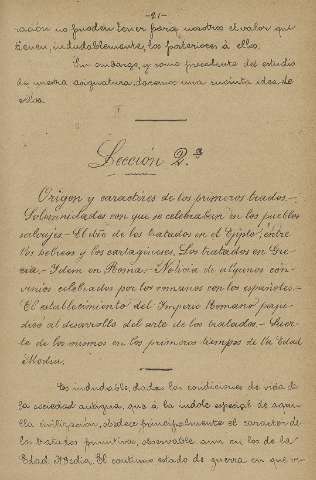 -21-
razón no pueden tener para nosotros el valor que
tienen, indudablemente, los posteriores á ellos.
Sin embargo, y como precedente del estudio
de nuestra asignatura, daremos una sucinta idea de
ellos.
Lección 2.ª
Origen y caractéres de los primeros tratados.-
Solemnidades con que se celebraban en los pueblos
salvajes.- El dro de los tratados en el Egipto, entre
los hebreos y los cartagineses. Los tratados en Gre-
cia.- Idem en Roma.- Noticia de algunos con-
venios celebrados por los romanos con los españoles.-
El establecimiento del Imperio Romano perju-
dicó al desarrollo del arte de los tratados.- Suer-
te de los mismos en los primeros tiempos de la Edad
Media.
Es indudable, dadas las condiciones de vida de
la sociedad antigua, que á la índole especial de aque-
lla civilización, obedece principalmente el carácter de
los tratados primitivos, observable aun en los de la
Edad Media. El continuo estado de guerra en que vi-